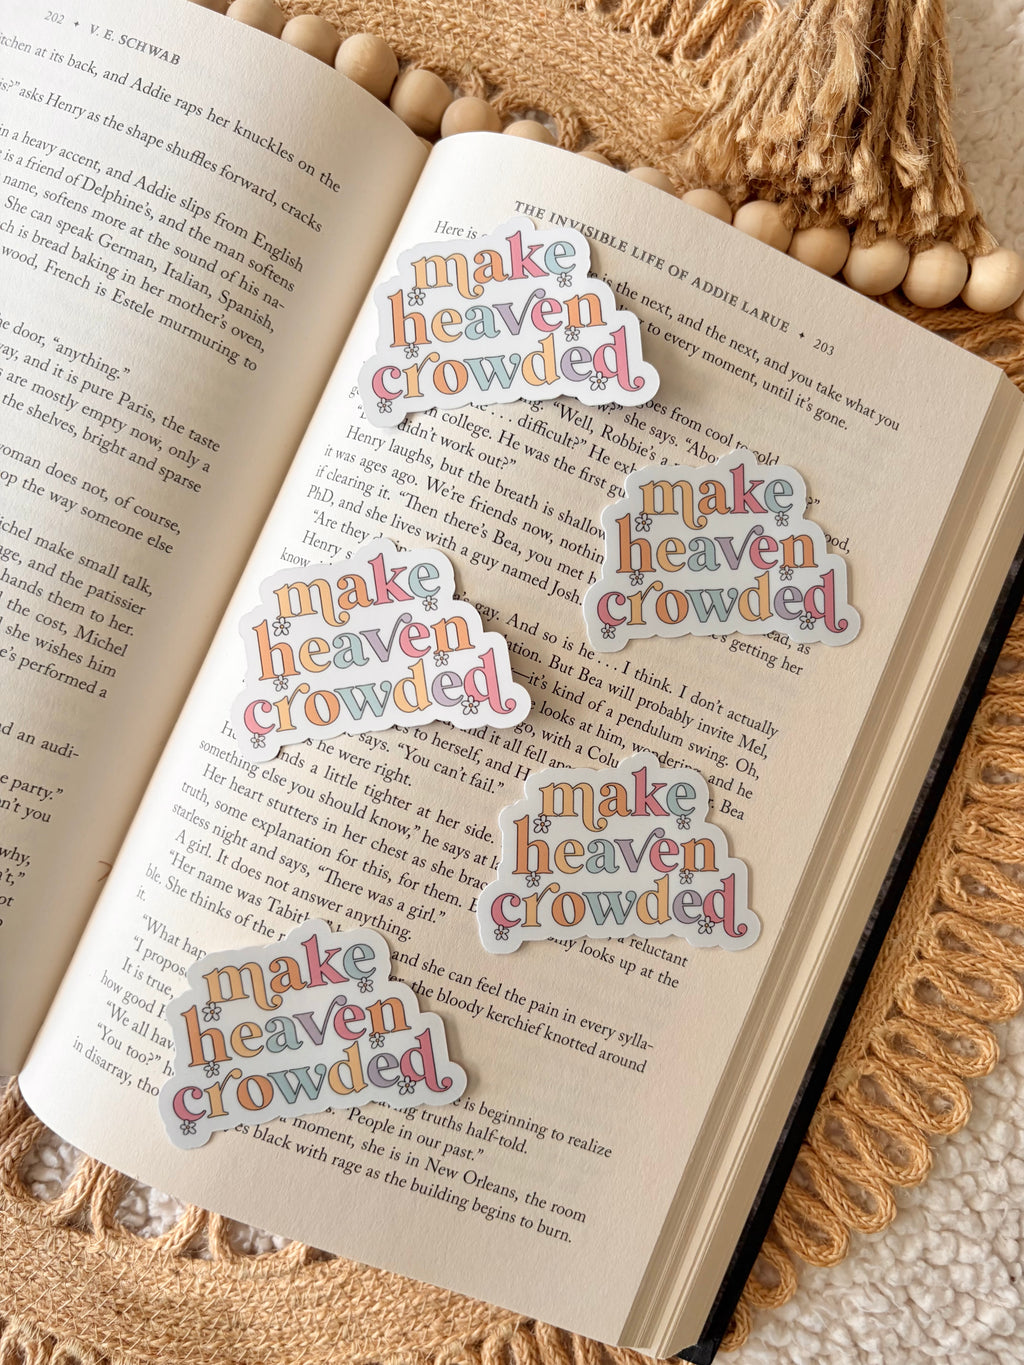 202 ✦ V. E. SCHWAB
itchen at its back, and Addie raps her knuckles on the
is?” asks Henry as the shape shuffles forward, cracks
in a heavy accent, and Addie slips from English
is a friend of Delphine’s, and the man softens
name, softens more at the sound of his na-
She can speak German, Italian, Spanish,
ch is bread baking in her mother’s oven,
wood, French is Estele murmuring to
he door, “anything.”
way, and it is pure Paris, the taste
s are mostly empty now, only a
the shelves, bright and sparse
woman does not, of course,
op the way someone else
ichel make small talk,
ge, and the patissier
hands them to her.
l the cost, Michel
d she wishes him
e’s performed a
nd an audi-
e party.”
n’t you
why,
t,”
ot
THE INVISIBLE LIFE OF ADDIE LARUE ✦ 203
Here is
is the next, and the next, and you take what you
to every moment, until it’s gone.
goes from cool to cold
“Well, Robbie’s a
she says. “Abo
. . . difficult?” He
in college. He was the first
didn’t work out?”
Henry laughs, but the breath is shallow
it was ages ago. We’re friends now, nothin
if clearing it. “Then there’s Bea, you met
PhD, and she lives with a guy named Josh
“Are they
Henry
know
gay. And so is he . . . I think. I don’t actually
ation. But Bea will probably invite Mel,
—it’s kind of a pendulum swing. Oh,
ead, as
’s getting her
e looks at him, wondering, and he
go, with a Colu
r. Bea
nd it all fell
to herself, and H
says. “You can’t fail.”
he were right.
nds a little tighter at her side.
something else you should know,” he says at
Her heart stutters in her chest as she
truth, some explanation for this, for them.
starless night and says, “There was a girl.”
A girl. It does not answer anything.
“Her name was Tabith
ble. She thinks of the
it.
a reluctant
only looks up at the
“What hap
and she can feel the pain in every sylla-
“I propos
the bloody kerchief knotted around
It is true,
how good
“We all hav
“You too?”
in disarray, tho
e is beginning to realize
truths half-told.
“People in our past.”
a moment, she is in New Orleans, the room
es black with rage as the building begins to burn.
make
heaven
crowded
make
heaven
crowded
make
heaven
crowded
make
heaven
crowded
make
heaven
crowded